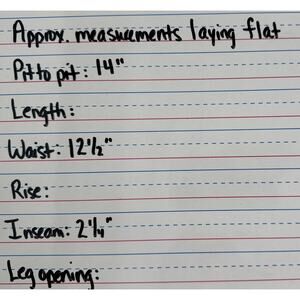 Approx. measurements laying flat
Pit to pit: 14"
Length:
Waist: 12½"
Rise:
Inseam: 2¼"
Leg opening: